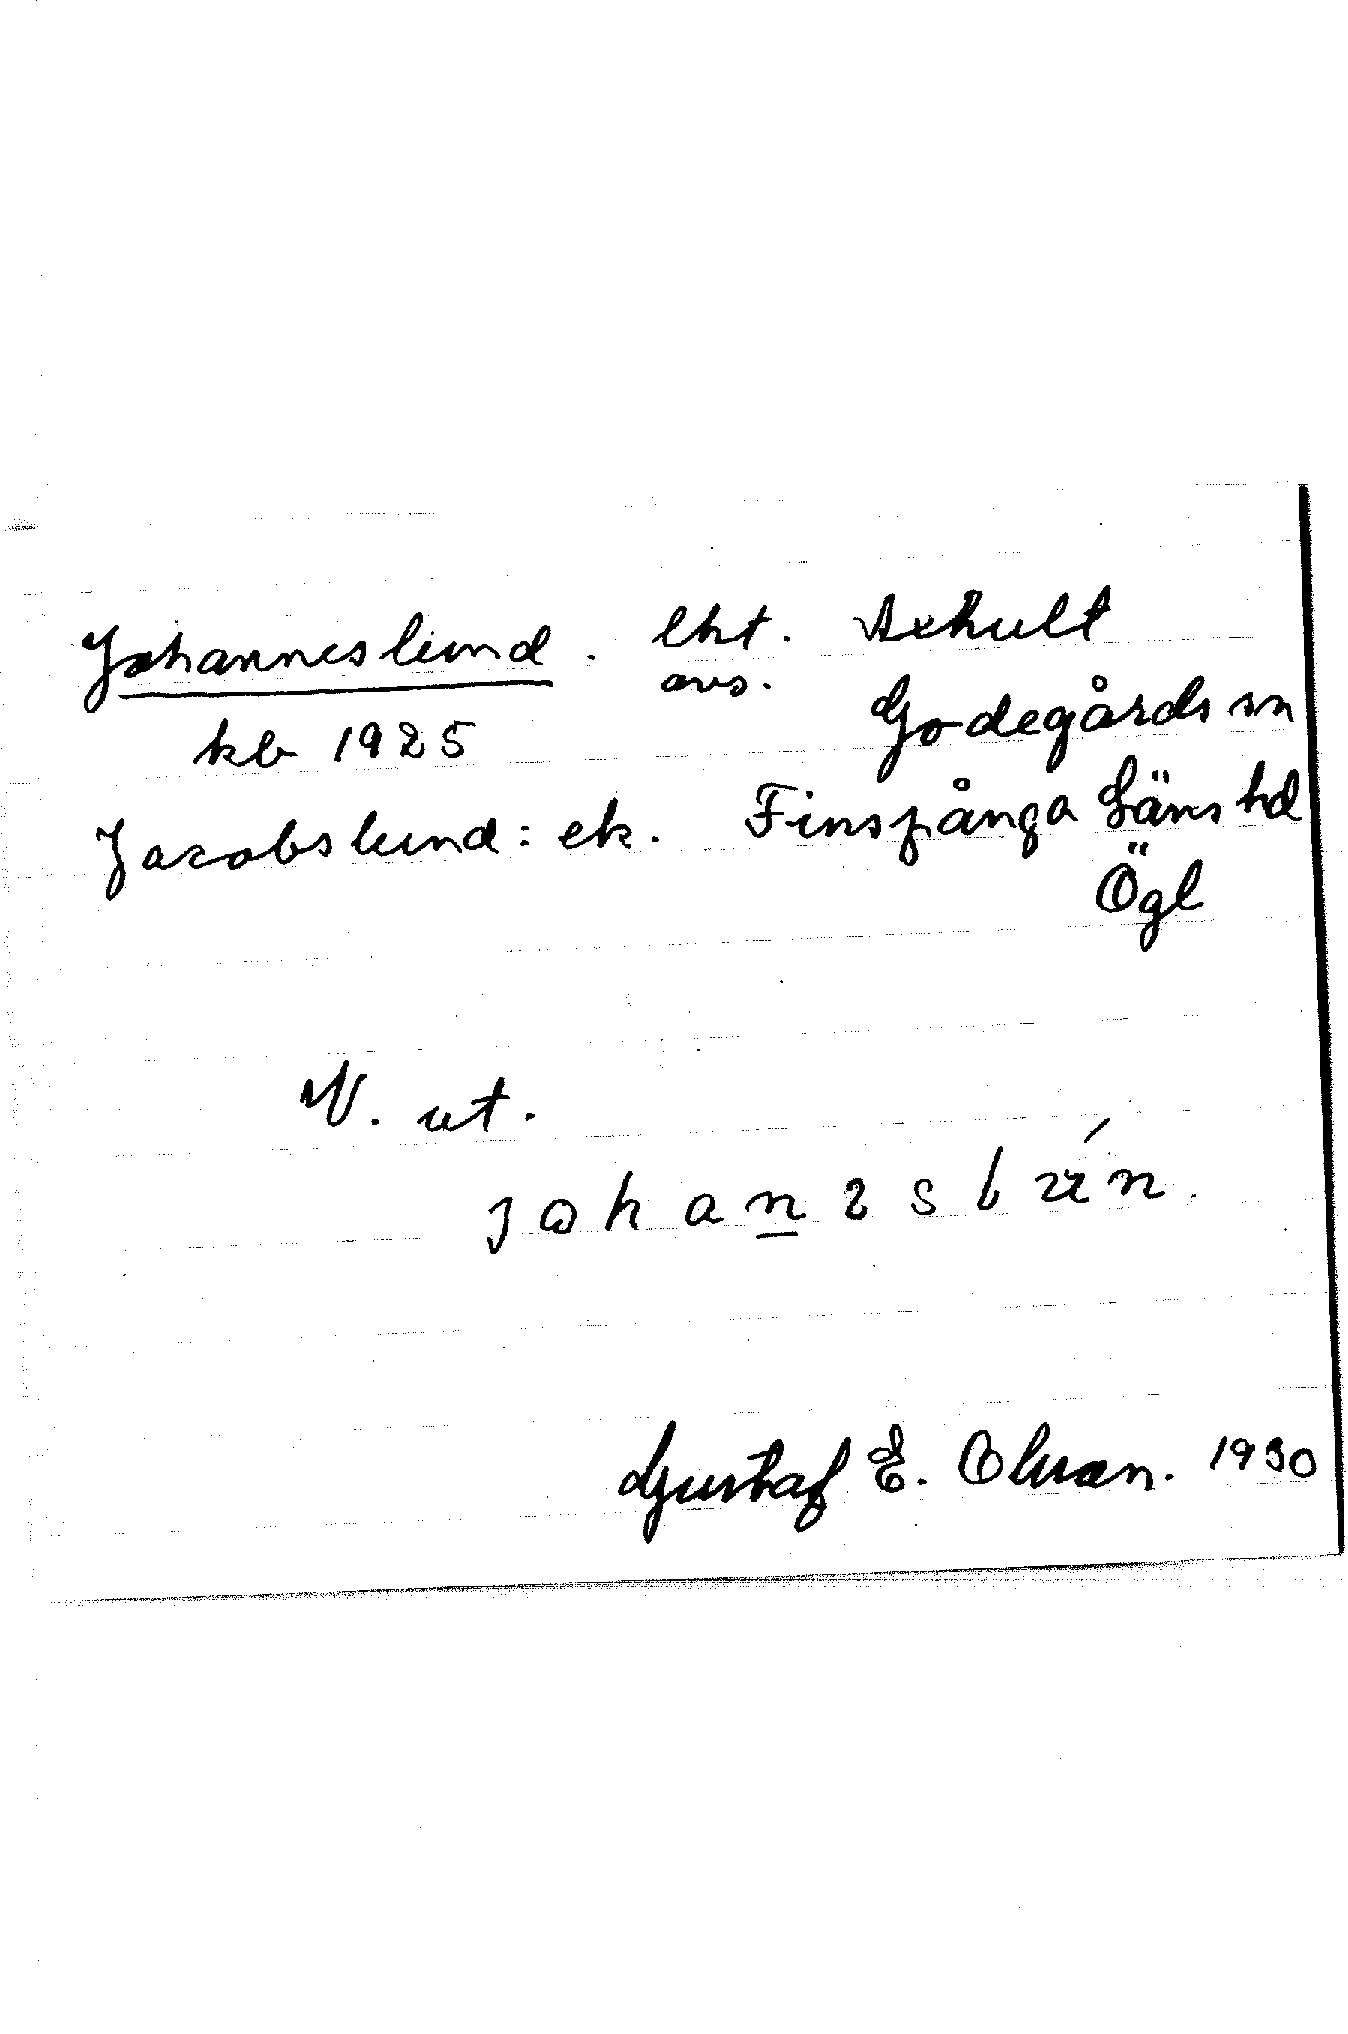 Johanneslund. lht. Axhult
avs. Godegårds sn
kb 1925
Jacobslund: ek. Finspånga läns hd
Ögl
V. ut.
johanɜslún
Gustaf E. Olsson. 1930